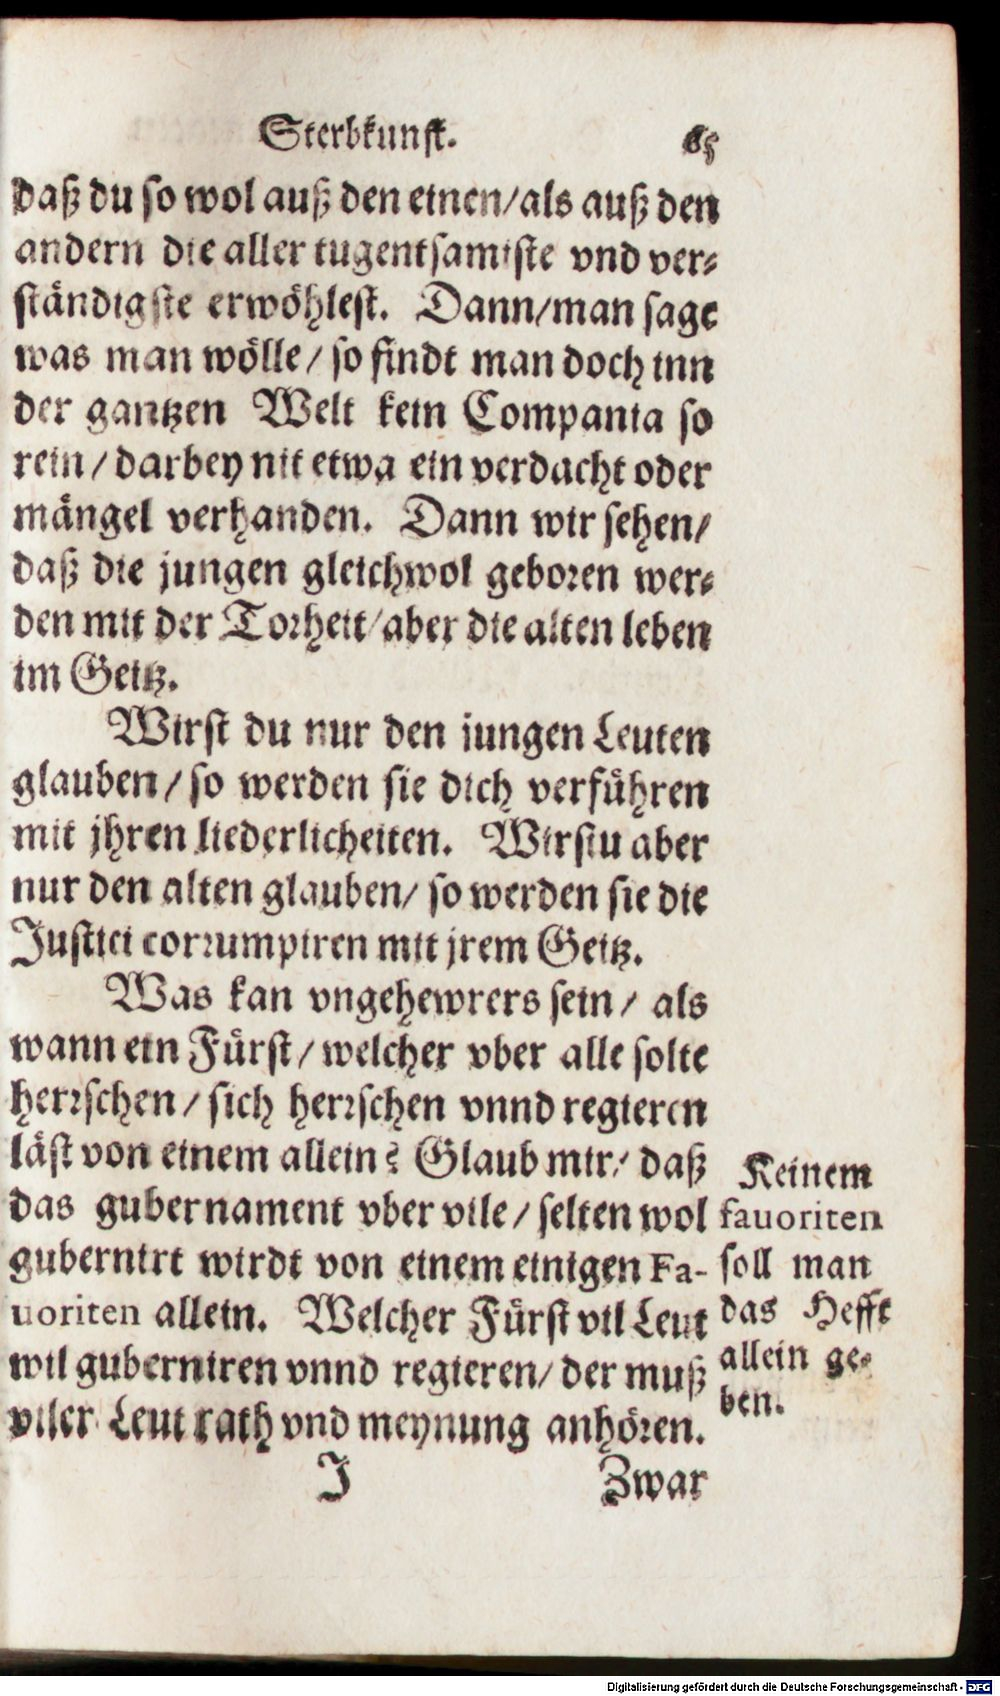 Sterbkunst. 65
daß du so wol auß den einen/als auß den
andern die aller tugentsamiste vnd ver⸗
ständigste erwöhlest. Dann/man sage
was man wölle/so findt man doch inn
der gantzen Welt kein Compania so
rein/darbey nit etwa ein verdacht oder
mängel verhanden. Dann wir sehen/
daß die jungen gleichwol geboren wer⸗
den mit der Torheit/aber die alten leben
im Geitz.
Wirst du nur den jungen Leuten
glauben/so werden sie dich verführen
mit jhren liederlicheiten. Wirstu aber
nur den alten glauben/so werden sie die
Justici corrumpiren mit jrem Geitz.
Was kan vngehewrers sein/als
wann ein Fürst/welcher vber alle solte
herrschen/sich herrschen vnnd regieren
läst von einem allein? Glaub mir/daß
das gubernament vber vile/selten wol
gubernirt wirdt von einem einigen Fa-
uoriten allein. Welcher Fürst vil Leut
wil guberniren vnnd regieren/der muß
viler Leut rath vnd meynung anhören.
Keinem
fauoriten
soll man
das Hefft
allein ge⸗
ben.
J Zwar
Digitalisierung gefördert durch die Deutsche Forschungsgemeinschaft - DFG